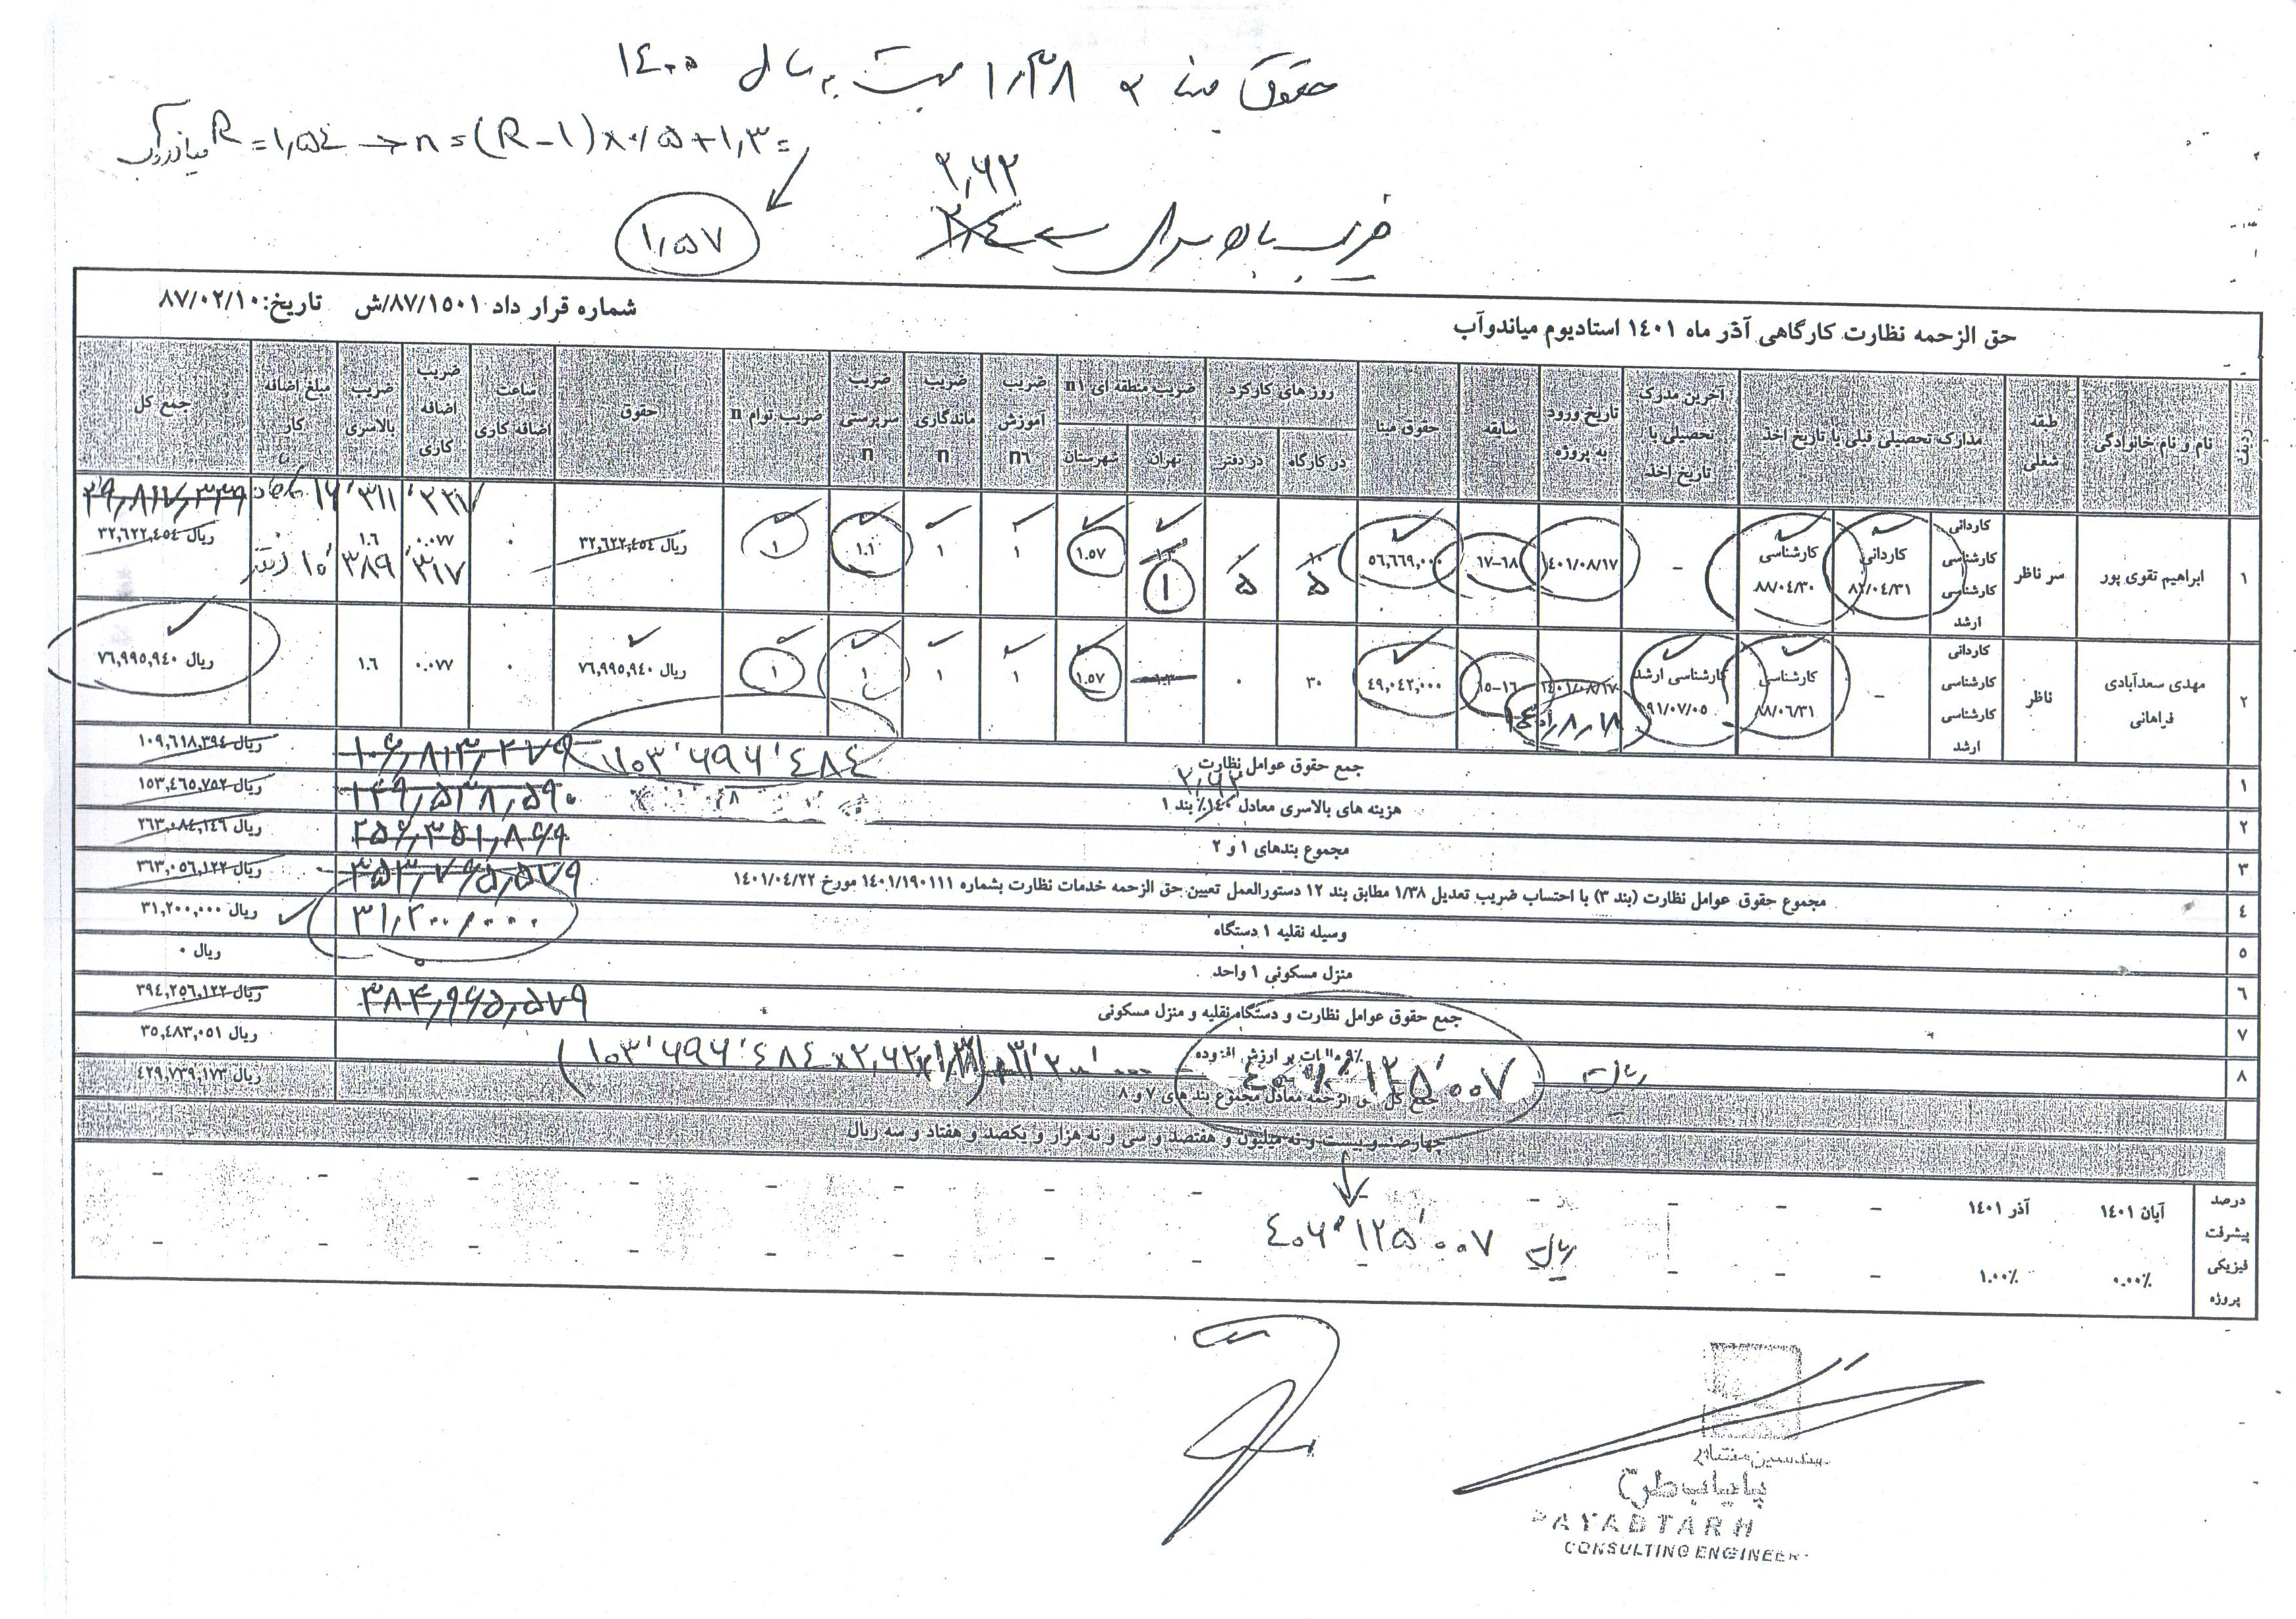 حقوق مبنا × ۱٫۳۸ نسبت به سال ۱۴۰۰
میاندوآب R = ۱٫۵۴ → n = (R-۱) × ۰٫۵ + ۱٫۳ =
۱٫۵۷
۲٫۶۲
ضریب بالاسری ← ۲٫۴
شماره قرار داد ۸۷/۱۵۰۱/ش تاریخ: ۸۷/۰۲/۱۰
حق الزحمه نظارت کارگاهی آذر ماه ۱۴۰۱ استادیوم میاندوآب
ردیف
نام و نام خانوادگی
طبقه شغلی
مدارک تحصیلی قبلی با تاریخ اخذ
آخرین مدرک تحصیلی با تاریخ اخذ
تاریخ ورود به پروژه
سابقه
حقوق مبنا
روز های کارکرد
در کارگاه
در دفتر
ضریب منطقه ای n۱
تهران
شهرستان
ضریب آموزش n۶
ضریب ماندگاری n
ضریب سرپرستی n
ضریب توام n
حقوق
ساعت اضافه کاری
ضریب اضافه کاری
ضریب بالاسری
مبلغ اضافه کار
جمع کل
۱
ابراهیم تقوی پور
سر ناظر
کاردانی
کارشناسی
کارشناسی
ارشد
کاردانی
۸۲/۰۴/۳۱
کارشناسی
۸۸/۰۴/۳۰
-
۱۴۰۱/۰۸/۱۷
۱۷-۱۸
۵۶,۶۶۹,۰۰۰
۱۰
۵
۰
۵
۱
۱.۵۷
۱
۱
۱.۱
۱
ریال ۳۲,۶۲۲,۴۵۴
۰
۰.۰۷۷
۱.۶
ریال ۳۲,۶۲۲,۴۵۴
۲۹,۸۱۷,۳۳۹
۱۶٬۳۱۱٬۲۲۷
کارگاه
۱۰٬۳۸۹٬۳۱۷
دفتر
۲
مهدی سعدآبادی فراهانی
ناظر
کاردانی
کارشناسی
کارشناسی
ارشد
-
کارشناسی
۸۸/۰۶/۳۱
کارشناسی ارشد
۹۱/۰۷/۰۵
۱۴۰۱/۰۸/۱۷
۱۵-۱۶
۴۹,۰۴۲,۰۰۰
۳۰
۰
۱.۳
۱.۵۷
۱
۱
۱
۱
ریال ۷۶,۹۹۵,۹۴۰
۰
۰.۰۷۷
۱.۶
ریال ۷۶,۹۹۵,۹۴۰
۱
جمع حقوق عوامل نظارت
۱۰۳٬۶۹۶٬۴۸۴
۱۰۶,۸۱۳,۲۷۹
ریال ۱۰۹,۶۱۸,۳۹۴
۲
هزینه های بالاسری معادل ۱۴۰٪ بند ۱
۲٫۶۲
۱۴۹,۵۳۸,۵۹۰
ریال ۱۵۳,۴۶۵,۷۵۲
۳
مجموع بندهای ۱ و ۲
۲۵۶,۳۵۱,۸۶۹
ریال ۲۶۳,۰۸۴,۱۴۶
۴
مجموع حقوق عوامل نظارت (بند ۳) با احتساب ضریب تعدیل ۱/۳۸ مطابق بند ۱۲ دستورالعمل تعیین حق الزحمه خدمات نظارت بشماره ۱۴۰۱/۱۹۰۱۱۱ مورخ ۱۴۰۱/۰۴/۲۲
۳۵۳,۷۶۵,۵۷۹
ریال ۳۶۳,۰۵۶,۱۲۲
۵
وسیله نقلیه ۱ دستگاه
۳۱,۲۰۰,۰۰۰
ریال ۳۱,۲۰۰,۰۰۰
۶
منزل مسکونی ۱ واحد
۰
ریال ۰
۷
جمع حقوق عوامل نظارت و دستگاه نقلیه و منزل مسکونی
۳۸۴,۹۶۵,۵۷۹
ریال ۳۹۴,۲۵۶,۱۲۲
۸
۹٪ مالیات بر ارزش افزوده
ریال ۳۵,۴۸۳,۰۵۱
(۱۰۳٬۶۹۶٬۴۸۴ × ۲٫۶۲ × ۱٫۳۸) + ۳۱٬۲۰۰٬۰۰۰
۴۰۶٬۱۲۵٬۰۰۷ ریال
جمع کل حق الزحمه معادل مجموع بند های ۷ و ۸
ریال ۴۲۹,۷۳۹,۱۷۳
چهارصد و بیست و نه میلیون و هفتصد و سی و نه هزار و یکصد و هفتاد و سه ریال
درصد پیشرفت فیزیکی پروژه
آبان ۱۴۰۱
آذر ۱۴۰۱
۰.۰۰٪
۱.۰۰٪
۴۰۶٬۱۲۵٬۰۰۷ ریال
مهندسین مشاور
پایاب طرح
PAYABTARH
CONSULTING ENGINEER